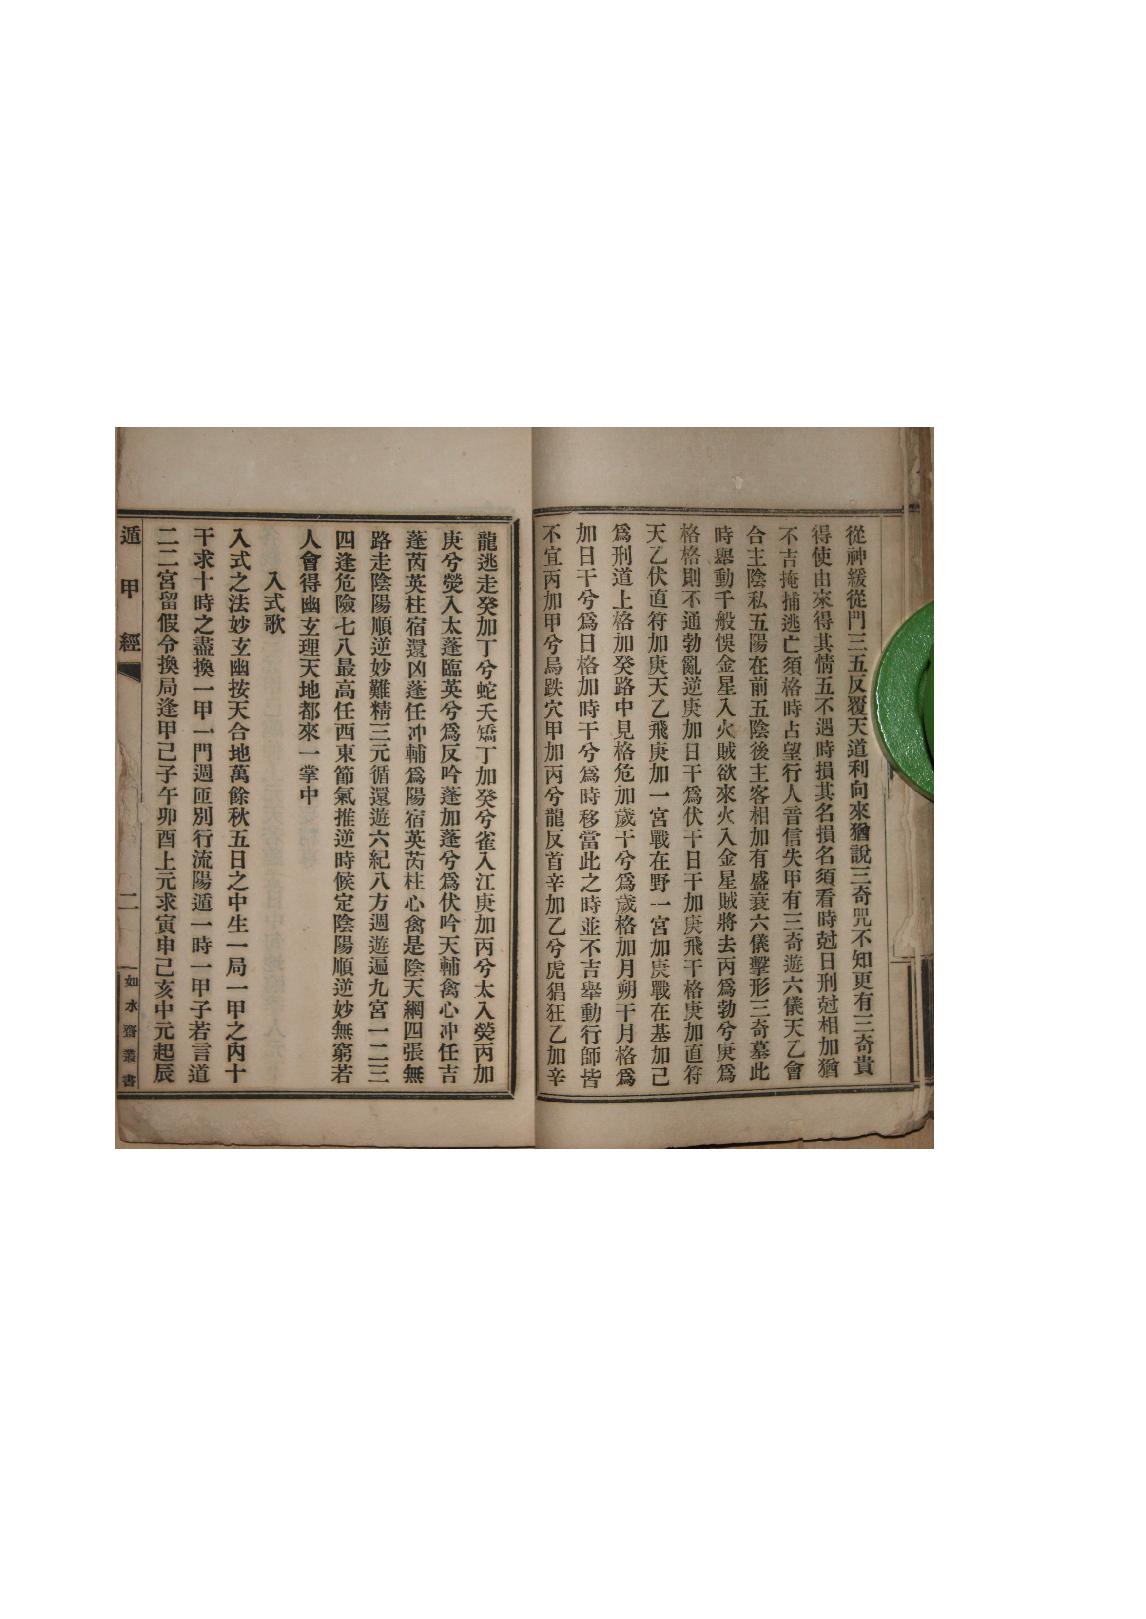 從神緩從門三五反覆天道利向來猶說三奇咒不知更有三奇貴
得使由來得其情五不遇時損其名損名須看時尅日刑尅相加猶
不吉掩捕逃亡須格時占望行人音信失甲有三奇遊六儀天乙會
合主陰私五陽在前五陰後主客相加有盛衰六儀擊形三奇墓此
時舉動千般悞金星入火賊欲來火入金星賊將去丙爲勃兮庚爲
格格則不通勃亂逆庚加日干爲伏干日干加庚飛干格庚加直符
天乙伏直符加庚天乙飛庚加一宮戰在野一宮加庚戰在基加己
爲刑道上格加癸路中見格危加歲干兮爲歲格加月朔干月格爲
加日干兮爲日格加時干兮爲時移當此之時並不吉舉動行師皆
不宜丙加甲兮鳥跌穴甲加丙兮龍反首辛加乙兮虎猖狂乙加辛
龍逃走癸加丁兮蛇夭矯丁加癸兮雀入江庚加丙兮太入熒丙加
庚兮熒入太蓬臨英兮爲反吟蓬加蓬兮爲伏吟天輔禽心冲任吉
蓬芮英柱宿還凶蓬任冲輔爲陽宿英芮柱心禽是陰天網四張無
路走陰陽順逆妙難精三元循還遊六紀八方週遊遍九宮一二三
四逢危險七八最高任西東節氣推逆時候定陰陽順逆妙無窮若
人會得幽玄理天地都來一掌中
入式歌
入式之法妙玄幽按天合地萬餘秋五日之中生一局一甲之內十
干求十時之盡換一甲一門週匝別行流陽遁一時一甲子若言道
二二宮留假令換局逢甲己子午卯酉上元求寅申己亥中元起辰
遁甲經
二
如水齋叢書